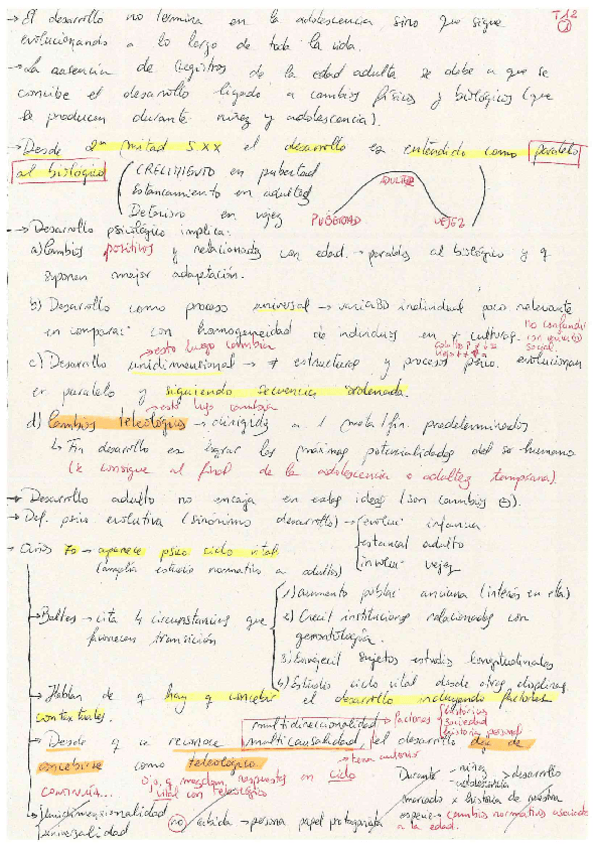 T12
①
→ El desarrollo no termina en la adolescencia, sino que sigue
evolucionando a lo largo de toda la vida.
→ La ausencia de registros de la edad adulta se debe a que se
concibe el desarrollo ligado a cambios físicos y biológicos (que
se producen durante niñez y adolescencia).
→ Desde 2ª mitad S.XX el desarrollo es entendido como paralelo
al biológico
CRECIMIENTO en pubertad
Estancamiento en adultez
Deterioro en vejez
PUBERTAD
ADULTEZ
VEJEZ
→ Desarrollo psicológico implica:
a) Cambios positivos y relacionados con edad. → paralelos al biológico y q
suponen mejor adaptación.
b) Desarrollo como proceso universal → individual poco relevante
en con homogeneidad de individuos en culturas.
no confundir
con
social
→ esto luego cambia
c) Desarrollo unidimensional → ≠ estructuras y procesos psico. evolucionan
en paralelo y siguiendo secuencia ordenada.
→ esto luego cambia
d) Cambios teleológicos → dirigidos a 1 meta/fin. predeterminados
↳ Fin desarrollo es lograr las máximas potencialidades del ser humano
(se consigue al final de la adolescencia o adultez temprana).
→ Desarrollo adulto no encaja en estas ideas (son cambios ⊖).
→ Def. psico evolutiva (sinónimo desarrollo) →
infancia
adulto
vejez
→ Años 70 → aparece psico ciclo vital
(amplía estudio normativo a adultos)
→ Baltes → cita 4 circunstancias que
favorecen transición
1) aumento poblac. anciana (interés en ella)
2) Crecit instituciones relacionadas con
gerontología.
3) Envejecit sujetos estudios longitudinales
4) Estudios ciclo vital desde otras disciplinas.
→ Hablan de q hay q concebir el desarrollo incluyendo factores
contextuales.
multidireccionalidad → factores
historia
sociedad
historia personal
→ Desde q se reconoce multicausalidad, el desarrollo deja de
concebirse como teleológico
→ tema anterior
Ojo, q mezclan respuestas en ciclo
vital con teleológico
CONTINÚA...
Unidimensionalidad
universalidad
no → persona papel protagonista
Durante niñez
adolescencia
> desarrollo
marcado x historia de nuestra
especie → cambios normativos asociados
a la edad.